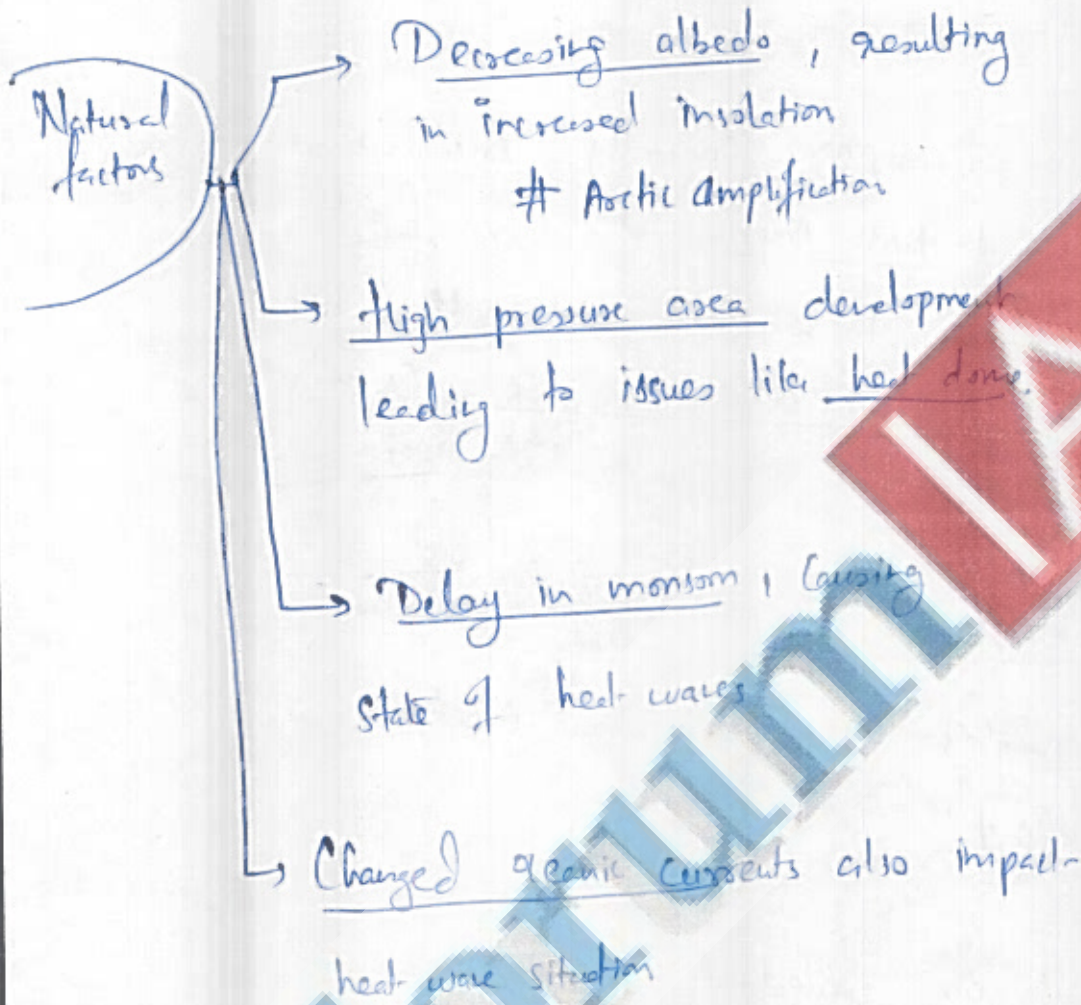 Natural
factors
Decreasing albedo, resulting
in increased insolation
# Arctic amplification
High pressure area development
leading to issues like heat dome.
Delay in monsoon, causing
state of heat waves
Changed oceanic currents also impact
heat wave situation
rum
IA